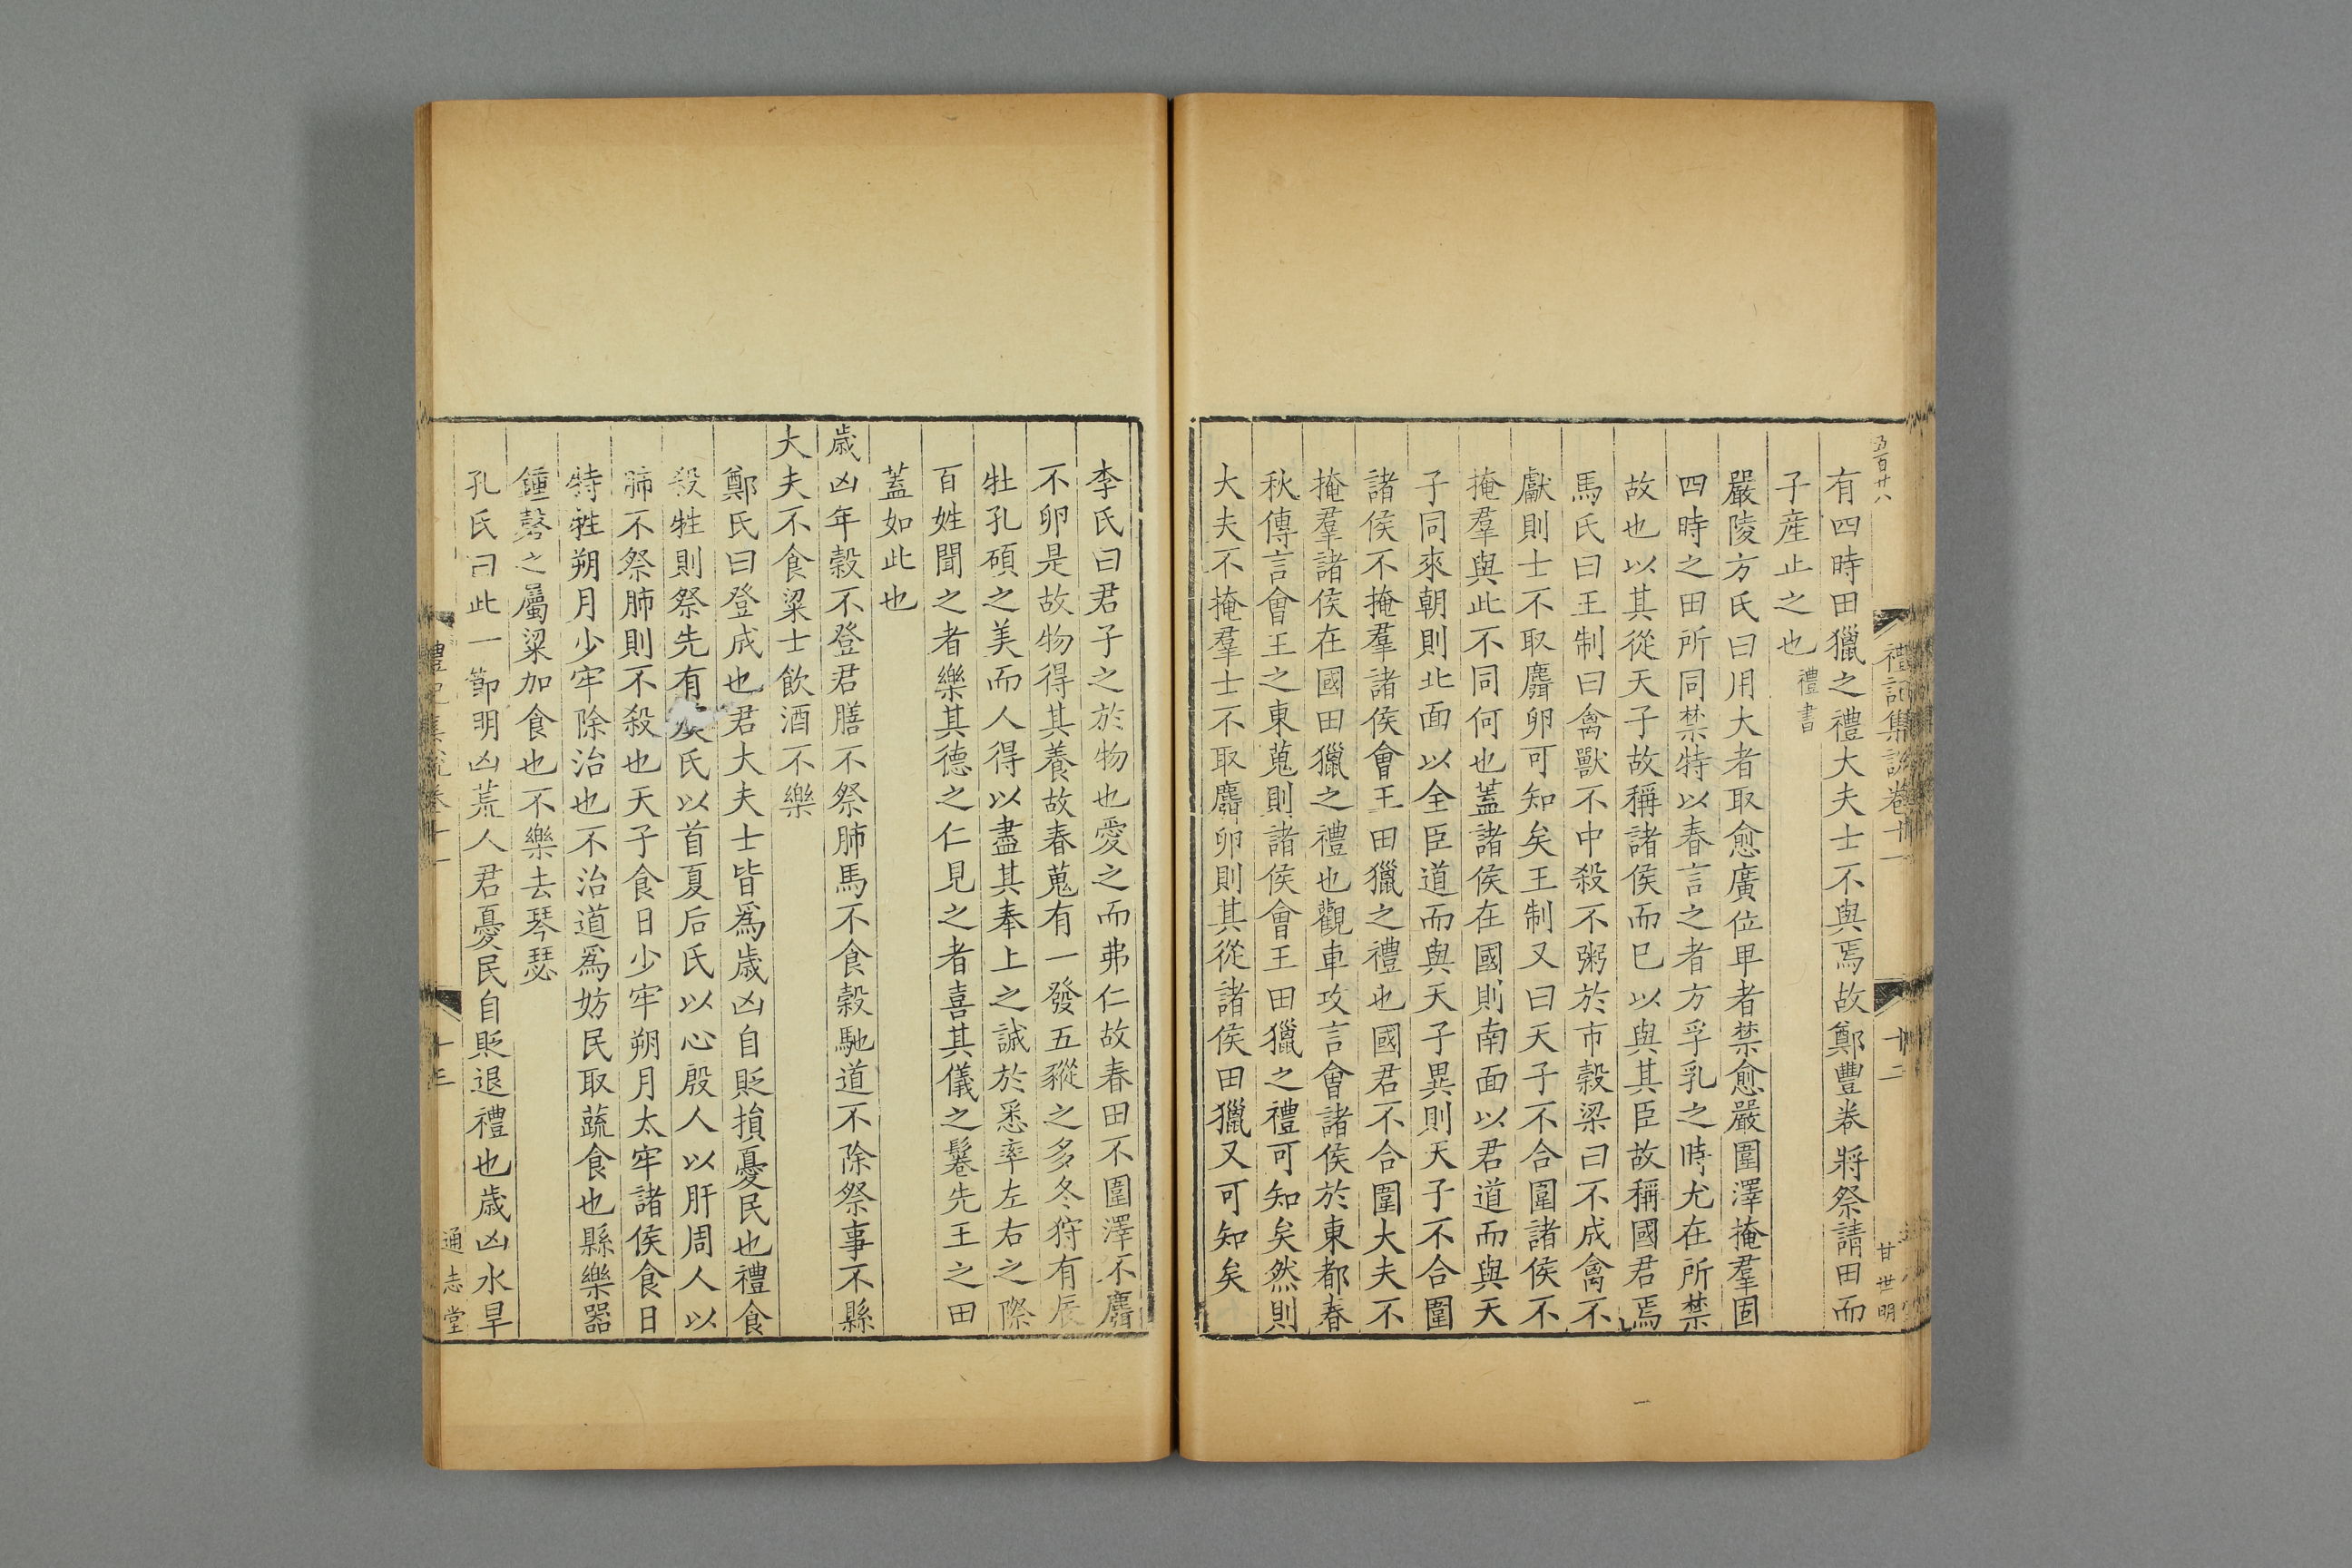 五百廿八
禮記集說卷十一
十二
甘世明
有四時田獵之禮大夫士不與焉故鄭豐卷將祭請田而
子産止之也禮書
嚴陵方氏曰用大者取愈廣位卑者禁愈嚴圍澤掩羣固
四時之田所同禁特以春言之者方孚乳之時尤在所禁
故也以其從天子故稱諸侯而巳以與其臣故稱國君焉
馬氏曰王制曰禽獸不中殺不粥於市榖梁曰不成禽不
獻則士不取麛卵可知矣王制又曰天子不合圍諸侯不
掩羣與此不同何也蓋諸侯在國則南面以君道而與天
子同來朝則北面以全臣道而與天子異則天子不合圍
諸侯不掩羣諸侯會王田獵之禮也國君不合圍大夫不
掩羣諸侯在國田獵之禮也觀車攻言會諸侯於東都春
秋傳言會王之東蒐則諸侯會王田獵之禮可知矣然則
大夫不掩羣士不取麛卵則其從諸侯田獵又可知矣
李氏曰君子之於物也愛之而弗仁故春田不圍澤不麛
不卵是故物得其養故春蒐有一發五豵之多冬狩有辰
牡孔碩之美而人得以盡其奉上之誠於悉率左右之際
百姓聞之者樂其德之仁見之者喜其儀之鬈先王之田
蓋如此也
歲凶年榖不登君膳不祭肺馬不食榖馳道不除祭事不縣
大夫不食粱士飲酒不樂
鄭氏曰登成也君大夫士皆爲歲凶自貶損憂民也禮食
殺牲則祭先有氏以首夏后氏以心殷人以肝周人以
肺不祭肺則不殺也天子食日少牢朔月太牢諸侯食日
特牲朔月少牢除治也不治道爲妨民取蔬食也縣樂器
鍾磬之屬粱加食也不樂去琴瑟
孔氏曰此一節明凶荒人君憂民自貶退禮也歲凶水旱
禮記集說卷十一
十三
通志堂